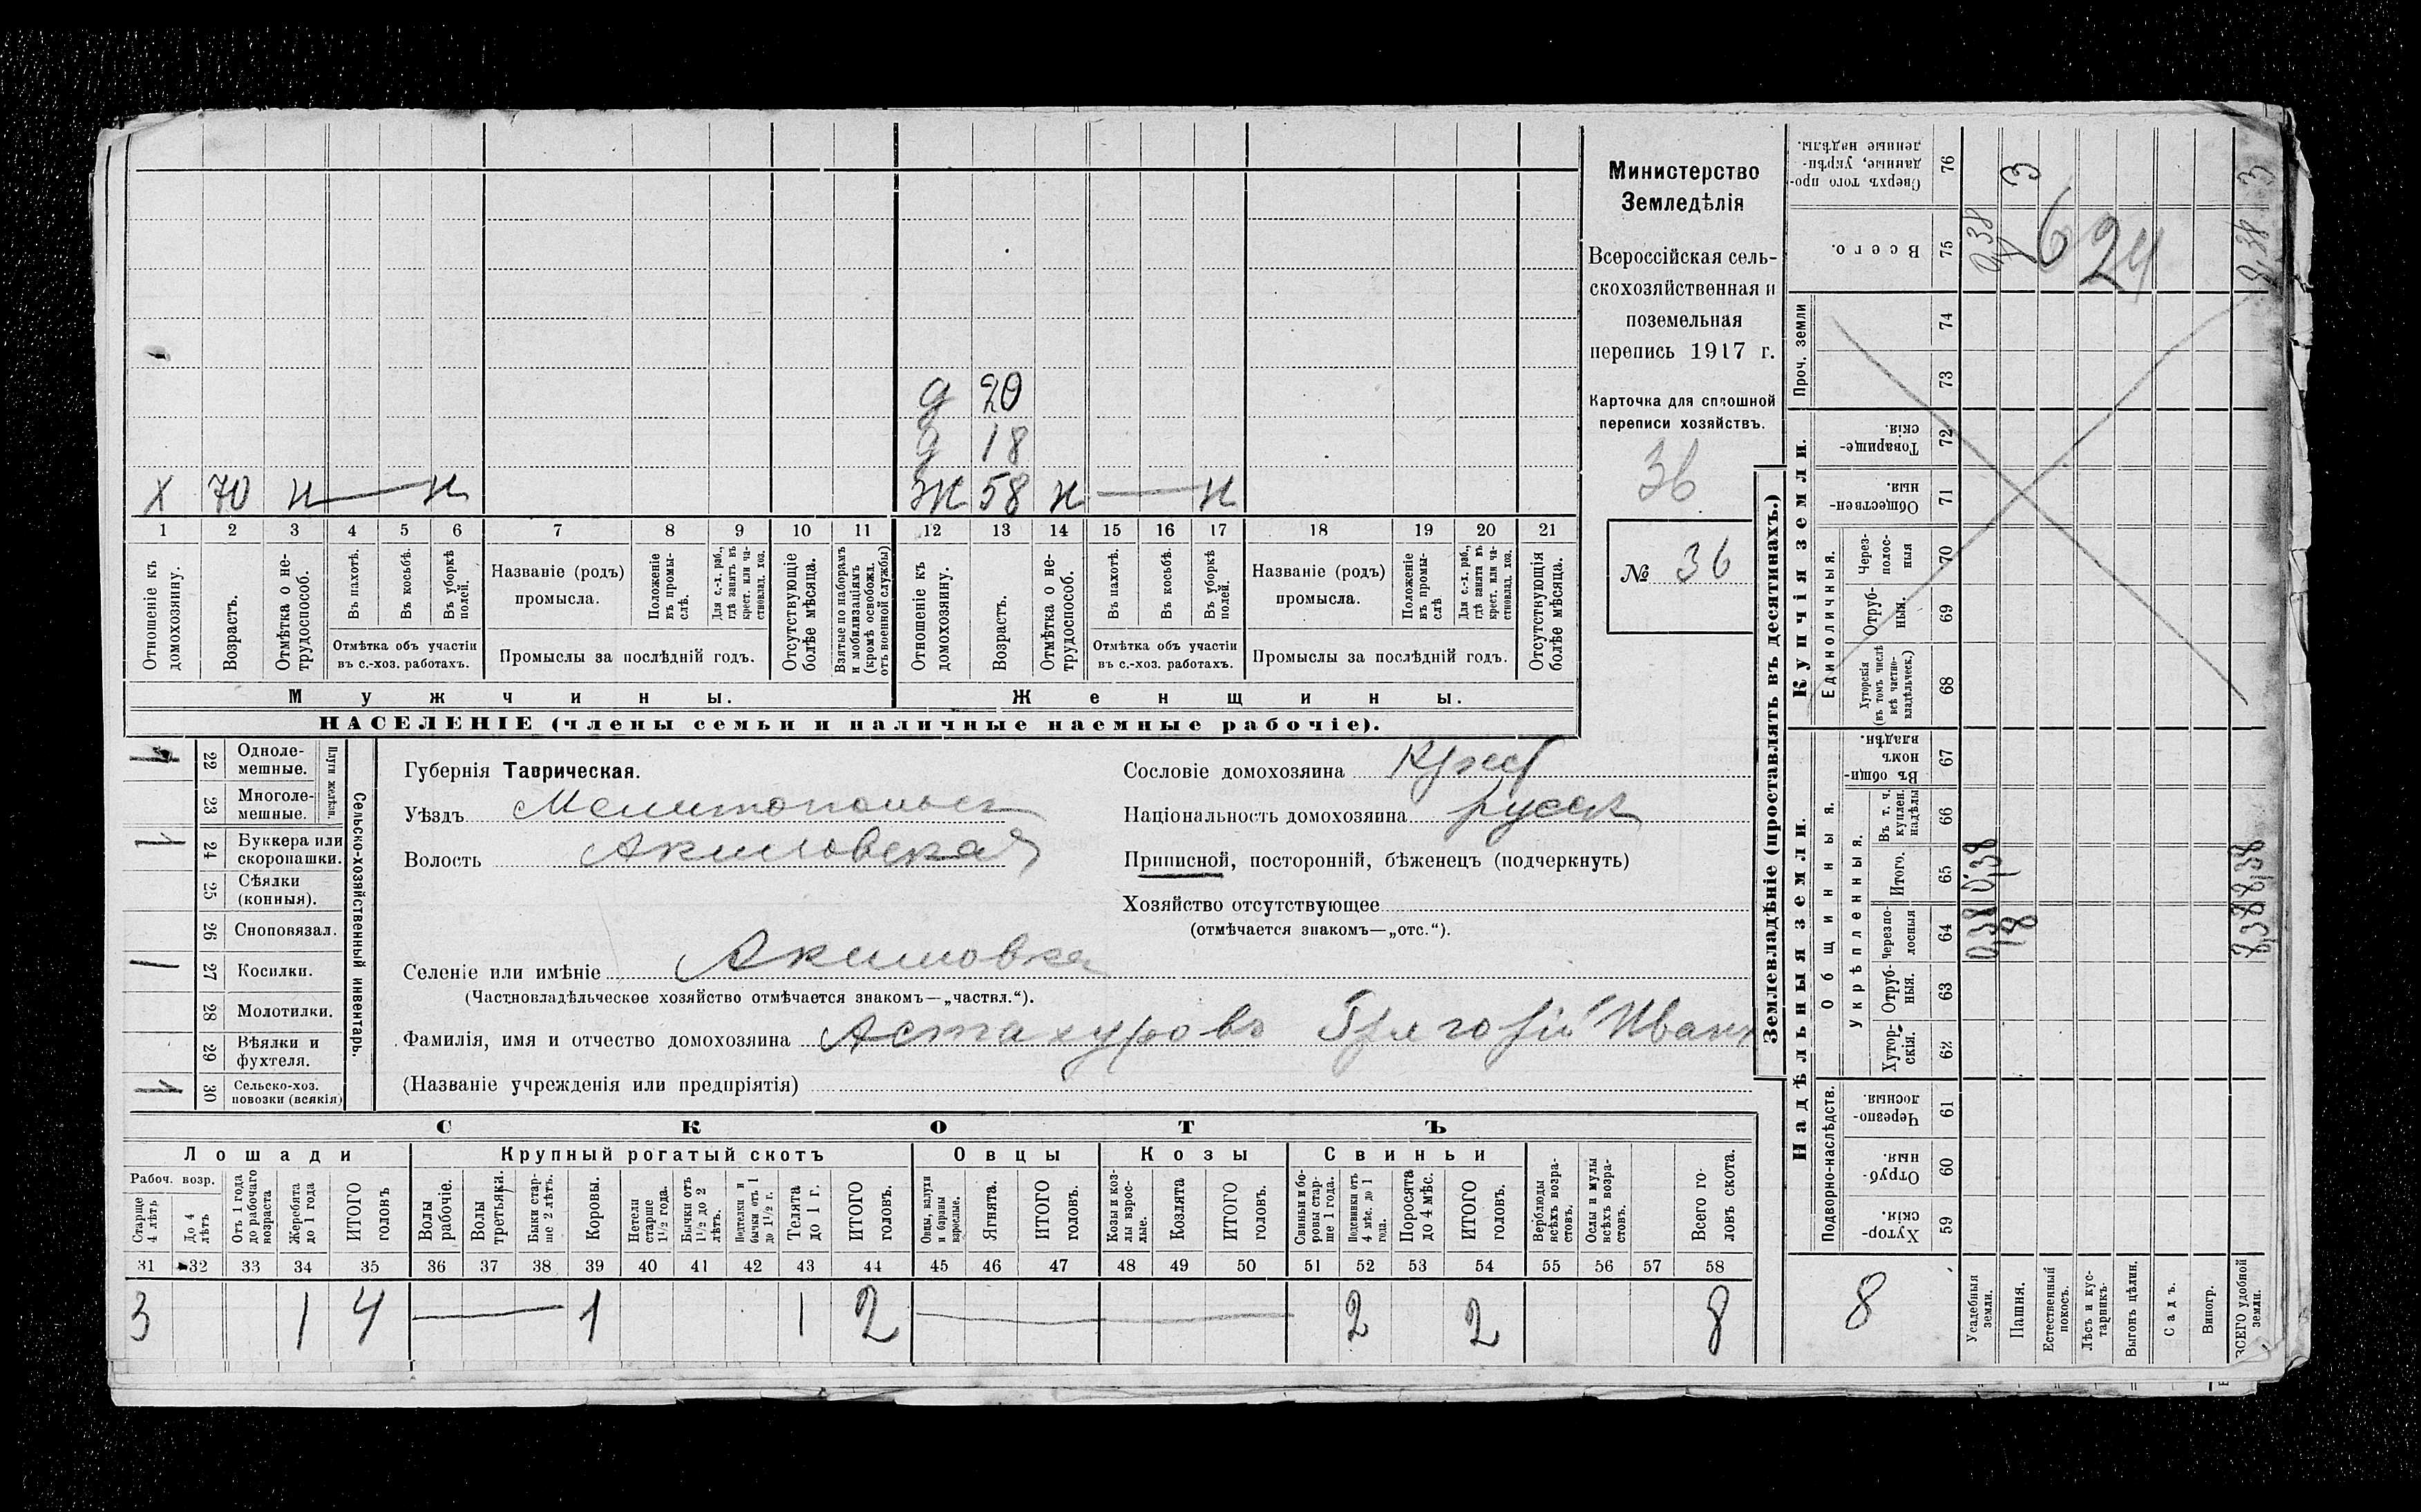 д 20
д 18
Х 70 н — н
Ж 58 н — н
1 2 3 4 5 6 7 8 9 10 11 12 13 14 15 16 17 18 19 20 21
Отношеніе къ домохозяину.
Возрастъ.
Отмѣтка о нетрудоспособ.
Въ пахотѣ.
Въ косьбѣ.
Въ уборкѣ полей.
Отмѣтка объ участіи
въ с.-хоз. работахъ.
Названіе (родъ)
промысла.
Положеніе въ промыслѣ.
Для с.-х. раб., гдѣ занятъ въ крест. или частновлад. хоз.
Промыслы за послѣдній годъ.
Отсутствующіе болѣе мѣсяца.
Взятые по наборамъ и мобилизаціямъ (кромѣ освобожд. отъ военной службы)
Отношеніе къ домохозяину.
Возрастъ.
Отмѣтка о нетрудоспособ.
Въ пахотѣ.
Въ косьбѣ.
Въ уборкѣ полей.
Отмѣтка объ участіи
въ с.-хоз. работахъ.
Названіе (родъ)
промысла.
Положеніе въ промыслѣ
Для с.-х. раб., гдѣ занятъ въ крест. или частновлад. хоз.
Промыслы за послѣдній годъ.
Отсутствующія болѣе мѣсяца.
Мужчины.
Женщины.
НАСЕЛЕНІЕ (члены семьи и наличные наемные рабочіе).
Министерство
Земледѣлія
Всероссійская сель-
скохозяйственная и
поземельная
перепись 1917 г.
Карточка для сплошной
переписи хозяйствъ.
36
№ 36
22 Однолемешные.
23 Многолемешные.
Плуги желѣзн.
24 Буккера или скоропашки.
25 Сѣялки (конныя).
26 Сноповязал.
27 Косилки.
28 Молотилки.
29 Вѣялки и фухтеля.
30 Сельско-хоз. повозки (всякія)
Сельско-хозяйственный инвентарь.
Губернія Таврическая.
Уѣздъ Мелитопольск
Волость Акимовская
Селеніе или имѣніе Акимовка
(Частновладѣльческое хозяйство отмѣчается знакомъ—„частвл.“).
Фамилія, имя и отчество домохозяина Астахуровъ Григорій Иван
(Названіе учрежденія или предпріятія)
Сословіе домохозяина Крест
Національность домохозяина русск
Приписной, посторонній, бѣженецъ (подчеркнуть)
Хозяйство отсутствующее
(отмѣчается знакомъ—„отс.“).
СКОТЪ
Лошади
Крупный рогатый скотъ
Овцы
Козы
Свиньи
Рабоч. возр.
Старше 4 лѣтъ
До 4 лѣтъ
Отъ 1 года до рабочаго возраста
Жеребята до 1 года
ИТОГО головъ
Волы рабочіе.
Волы третьяки.
Быки старше 2 лѣтъ.
Коровы.
Нетели старше 1½ года.
Бычки отъ 1½ до 2 лѣтъ.
Подтелки и бычки отъ 1 до 1½ г.
Телята до 1 г.
ИТОГО головъ.
Овцы, валухи и бараны взрослые.
Ягнята.
ИТОГО головъ.
Козы и козлы взрослые.
Козлята
ИТОГО головъ.
Свиньи и боровы старше 1 года.
Подсвинки отъ 4 мѣс. до 1 года.
Поросята до 4 мѣс.
ИТОГО головъ.
Верблюды всѣхъ возрастовъ.
Ослы и мулы всѣхъ возрастовъ.
Всего головъ скота.
31 32 33 34 35 36 37 38 39 40 41 42 43 44 45 46 47 48 49 50 51 52 53 54 55 56 57 58
3 1 4 — 1 1 2 — 2 2 8
Землевладѣніе (проставлять въ десятинахъ.)
Надѣльныя земли.
Купчія земли.
Подворно-наслѣдств.
Общинныя.
Укрѣпленныя.
Единоличныя.
Проч. земли
76 Сверхъ того проданные, укрѣпленные надѣлы. 3 3
75 Всего. 0,38 6 24
74
73
72 Товарищескія.
71 Общественныя.
70 Черезполосныя
69 Отрубныя.
68 Хуторскія (въ томъ числѣ всѣ частновладѣльческ.)
67 Въ общинномъ владѣн.
66 Въ т. ч. куплен. надѣлы
65 Итого. 0,38 8,38
64 Черезполосныя 0,38 8 8,38
63 Отрубныя.
62 Хуторскія.
61 Черезполосныя.
60 Отрубныя.
59 Хуторскія.
8
Усадебныя земли.
Пашня.
Естественный покосъ.
Лѣсъ и кустарникъ
Выгонъ цѣлин.
Садъ.
Виногр.
ВСЕГО удобной земли.